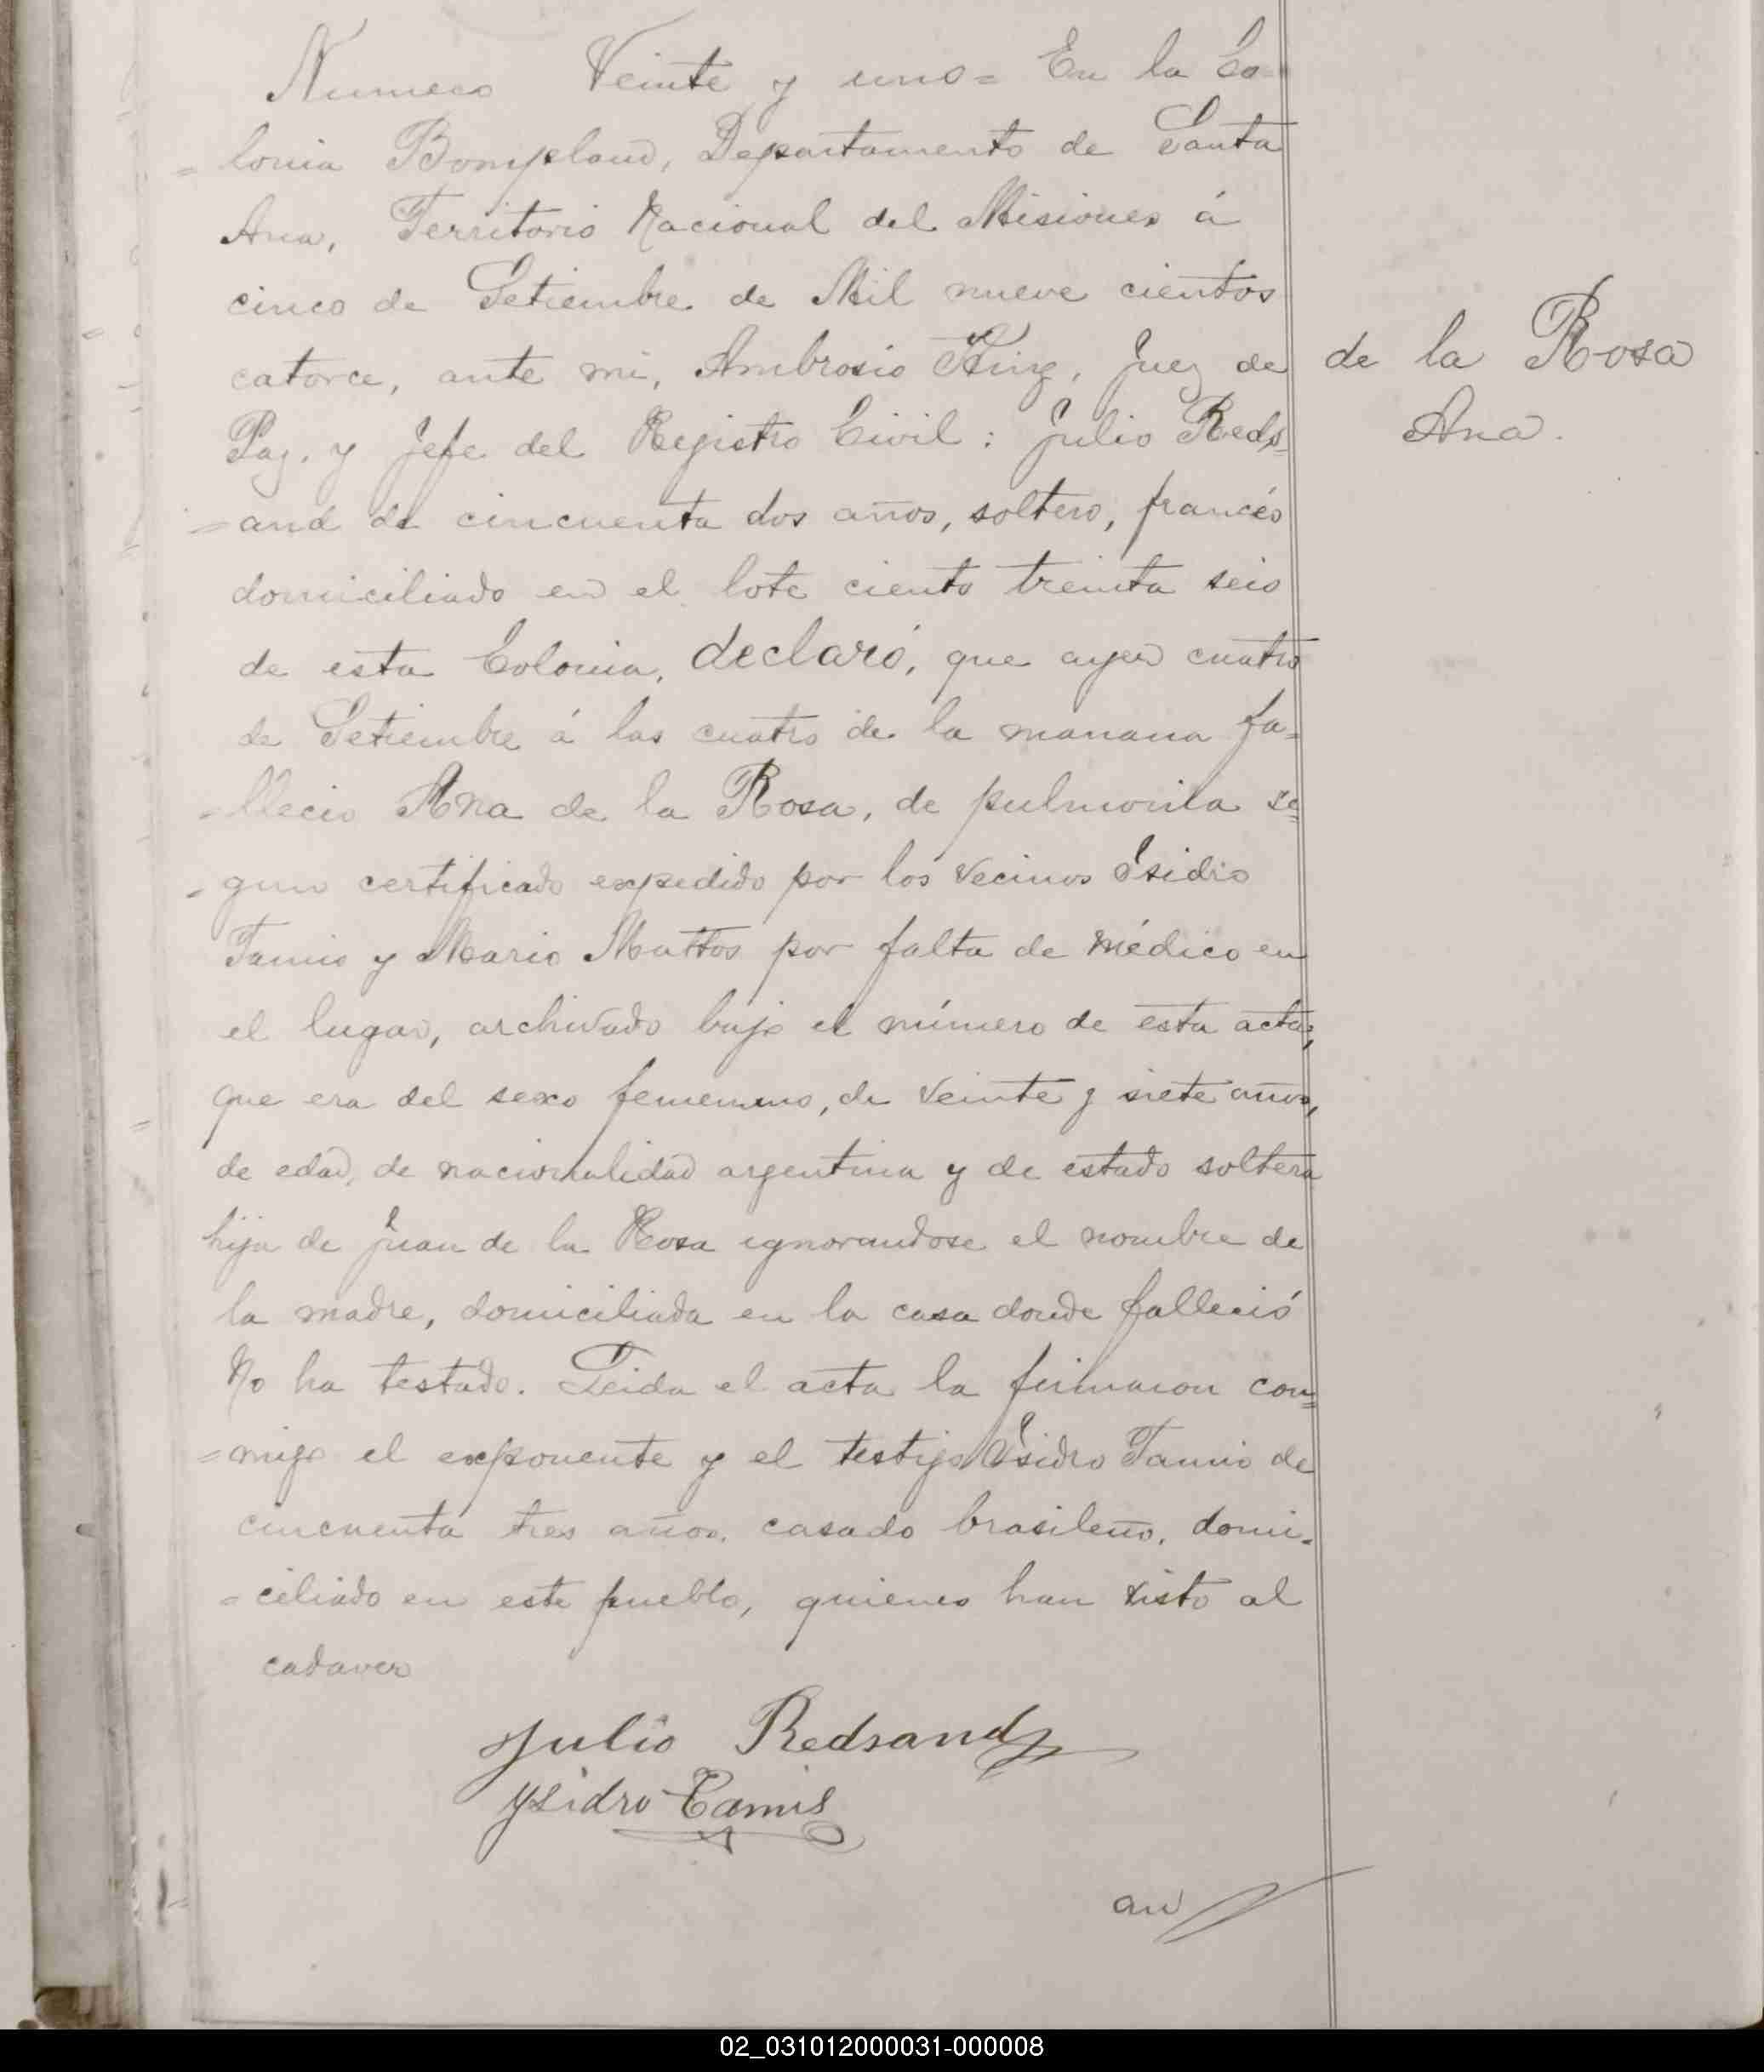 Numero Veinte y uno = En la Co-
= lonia Bompland, Departamento de Santa
Ana, Territorio Nacional del Misiones á
cinco de Setiembre de Mil nueve cientos
catorce, ante mi, Ambrosio King, Juez de
Paz, y Jefe del Registro Civil : Julio Reds=
= and de cincuenta dos años, soltero, francés
domiciliado en el lote ciento treinta seis
de esta Colonia, declaró, que ayer cuatro
de Setiembre á las cuatro de la manana fa=
= llecio Ana de la Rosa, de pulmonia se=
= gun certificado expedido por los vecinos Isidro
Tamis y Mario Mattos por falta de médico en
el lugar, archivado bajo el número de esta acta,
que era del sexo femenino, de veinte y siete años,
de edad, de nacionalidad argentina y de estado soltera
hija de Juan de la Rosa ignorandose el nombre de
la madre, domiciliada en la casa donde falleció
No ha testado. Leida el acta la firmaron con=
= migo el exponente y el testigo Isidro Tamis de
cincuenta tres años, casado brasileño, domi=
= ciliado en este pueblo, quienes han visto al
cadaver
de la Rosa
Ana.
Julio Redsand
Ysidro Tamis
02_031012000031-000008